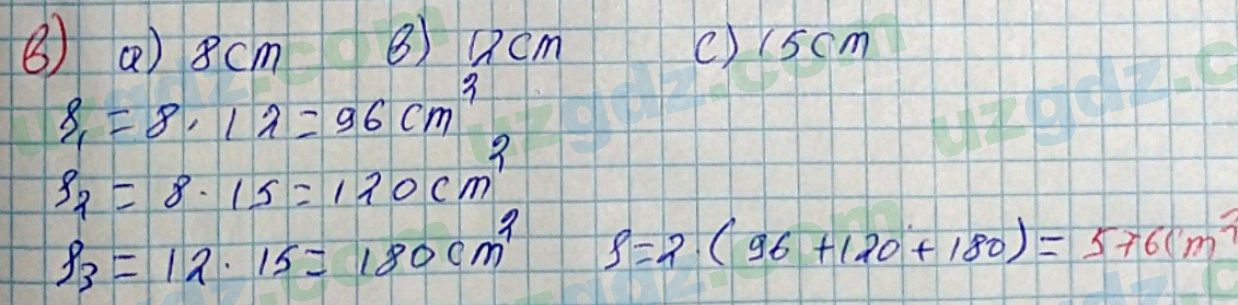 в) a) 8cm в) 12cm c) 15cm
S₁ = 8 · 12 = 96 cm²
S₂ = 8 · 15 = 120 cm²
S₃ = 12 · 15 = 180 cm² S = 2 · (96 + 120 + 180) = 576 cm²
uzgdz.com